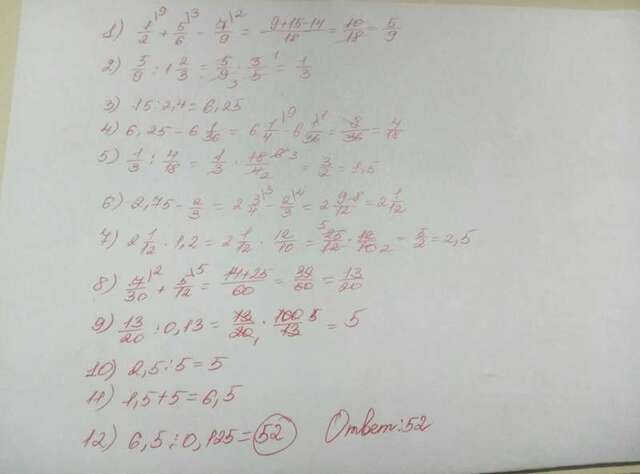 1) 1/2 \9 + 5/6 \3 - 7/9 \2 = 9+15-14/18 = 10/18 = 5/9
2) 5/9 : 1 2/3 = 5/9 3 · 3/5 1 = 1/3
3) 15:2,4=6,25
4) 6,25-6 1/36 = 6 1/4 \9 - 6 1/36 \1 = 8/36 = 4/18
5) 1/3 : 4/18 = 1/3 · 18/4 2 = 3/2 = 1,5
6) 2,75 - 2/3 = 2 3/4 \3 - 2/3 \4 = 2 9-8/12 = 2 1/12
7) 2 1/12 · 1,2 = 2 1/12 · 12/10 = 5 25/12 · 12/10 2 = 5/2 = 2,5
8) 7/30 \2 + 5/12 \5 = 14+25/60 = 39/60 = 13/20
9) 13/20 : 0,13 = 13/20 1 · 100/13 5 = 5
10) 2,5:5=5
11) 1,5+5=6,5
12) 6,5:0,125=52 Ответ:52